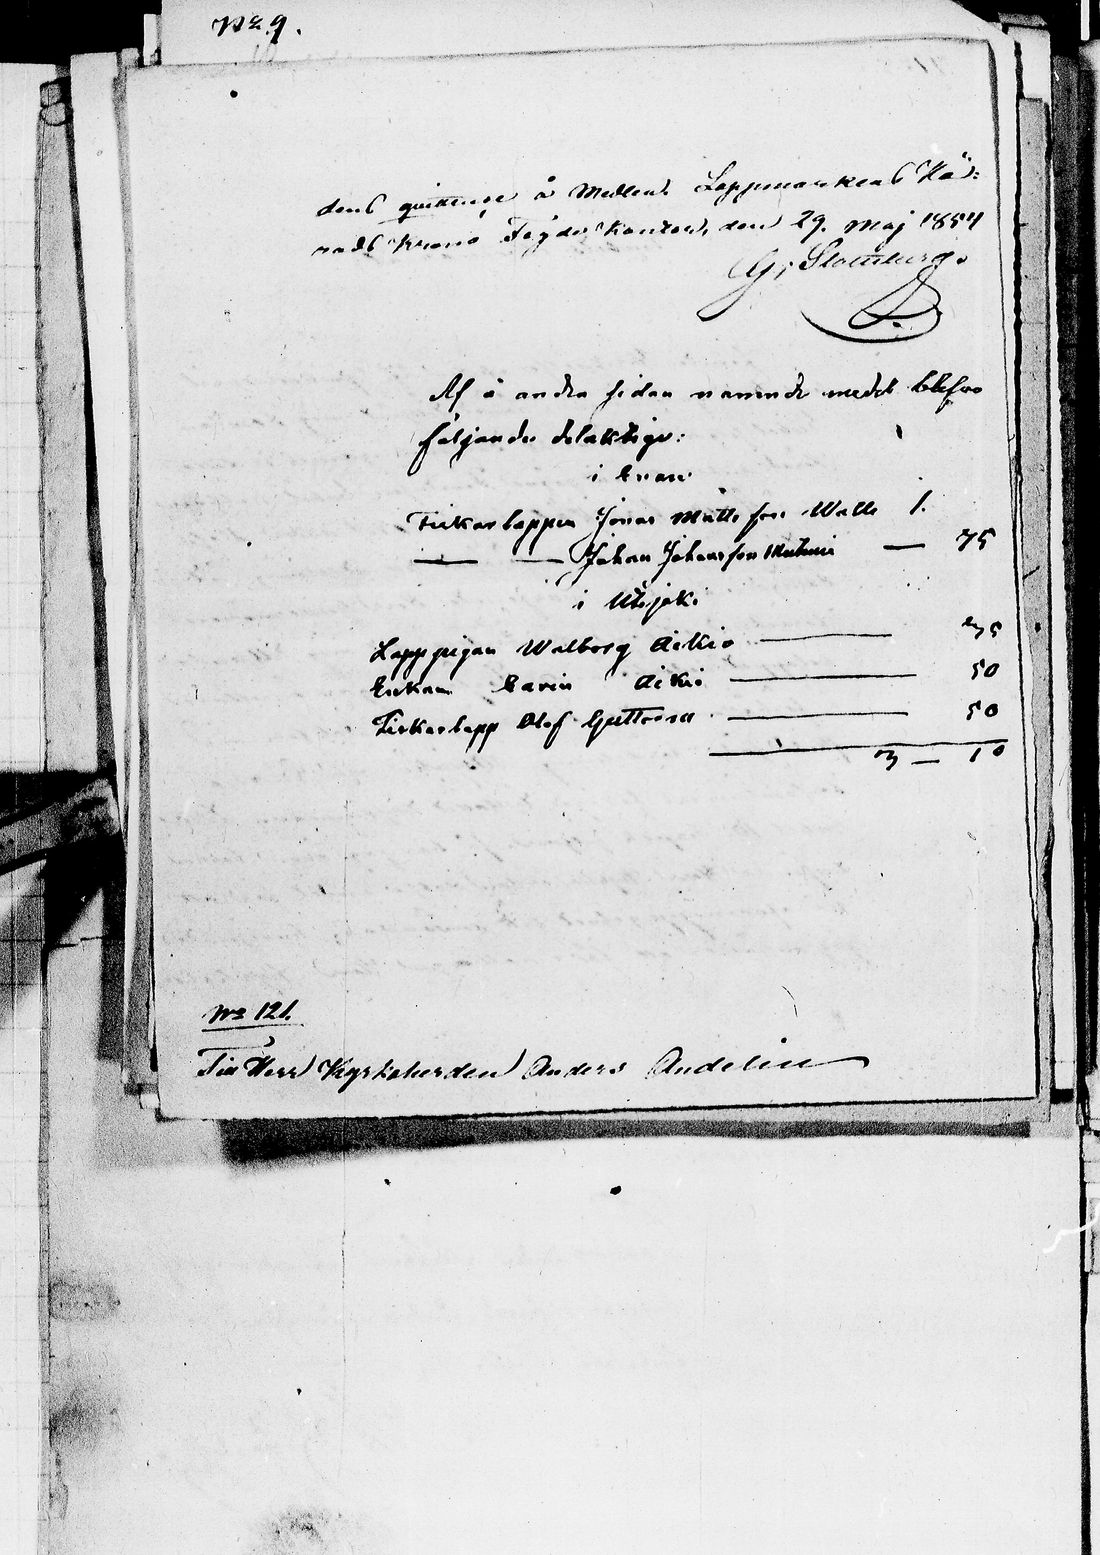 No 9.
dens quittence å Medlerst Lappmarkens Hä=
rads Krono Fogde Kontor, den 29. Maj 1854
Af å andra sidan nämnde medel blefvo
följande delaktige:
i Enare
Fiskarlappen Jonas Matts son Walle 1.
— — Johan Johansson — 75
i Utsjoki
Lapppigan Walborg Aikio — 35
Enkan Carin Aikio — 50
Fiskarlapp Olof Guttorm — 50
3 — 10
No 121.
Till Herr Kyrkoherden Anders Andelin